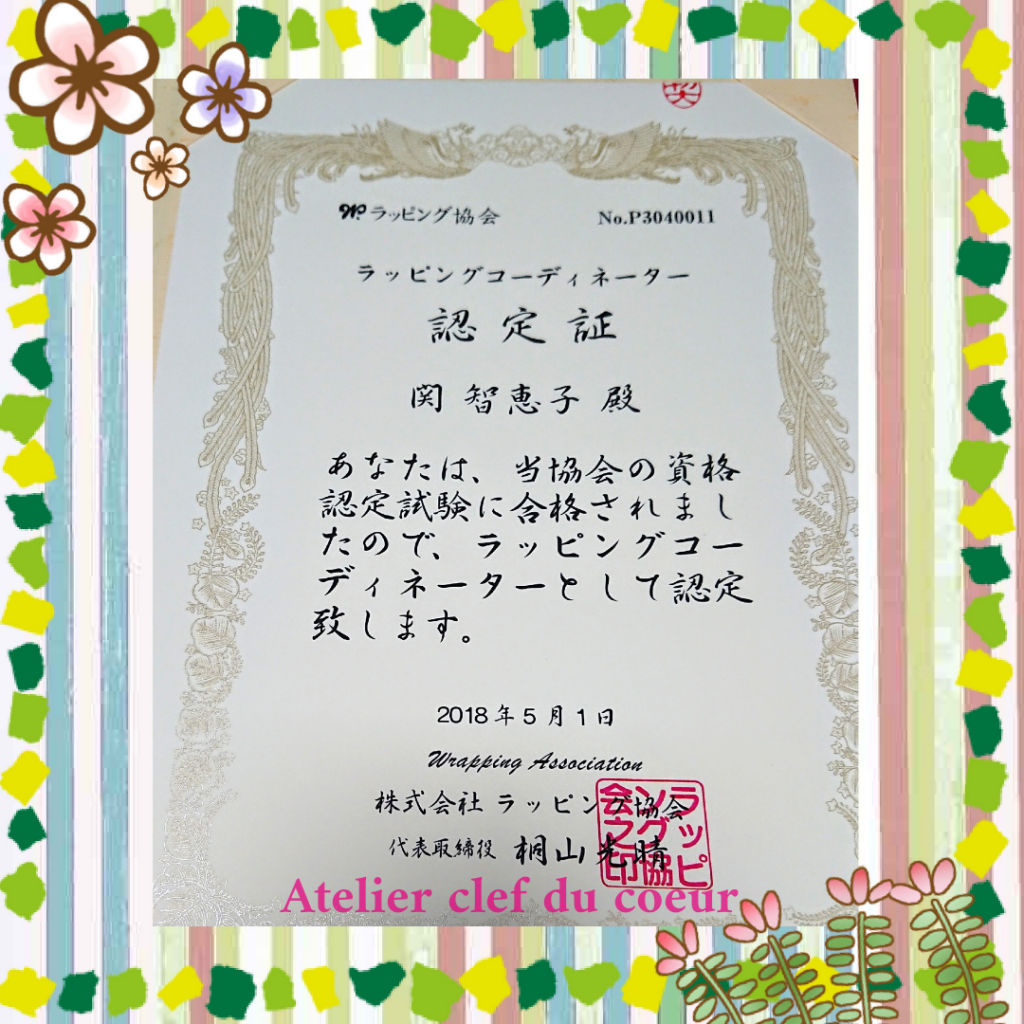 ラッピング協会
No.P3040011
ラッピングコーディネーター
認定証
関 智恵子 殿
あなたは、当協会の資格
認定試験に合格されまし
たので、ラッピングコー
ディネーターとして認定
致します。
2018年5月1日
Wrapping Association
株式会社 ラッピング協会
代表取締役 桐山光晴
ラッピ
ング協
会之印
Atelier clef du coeur